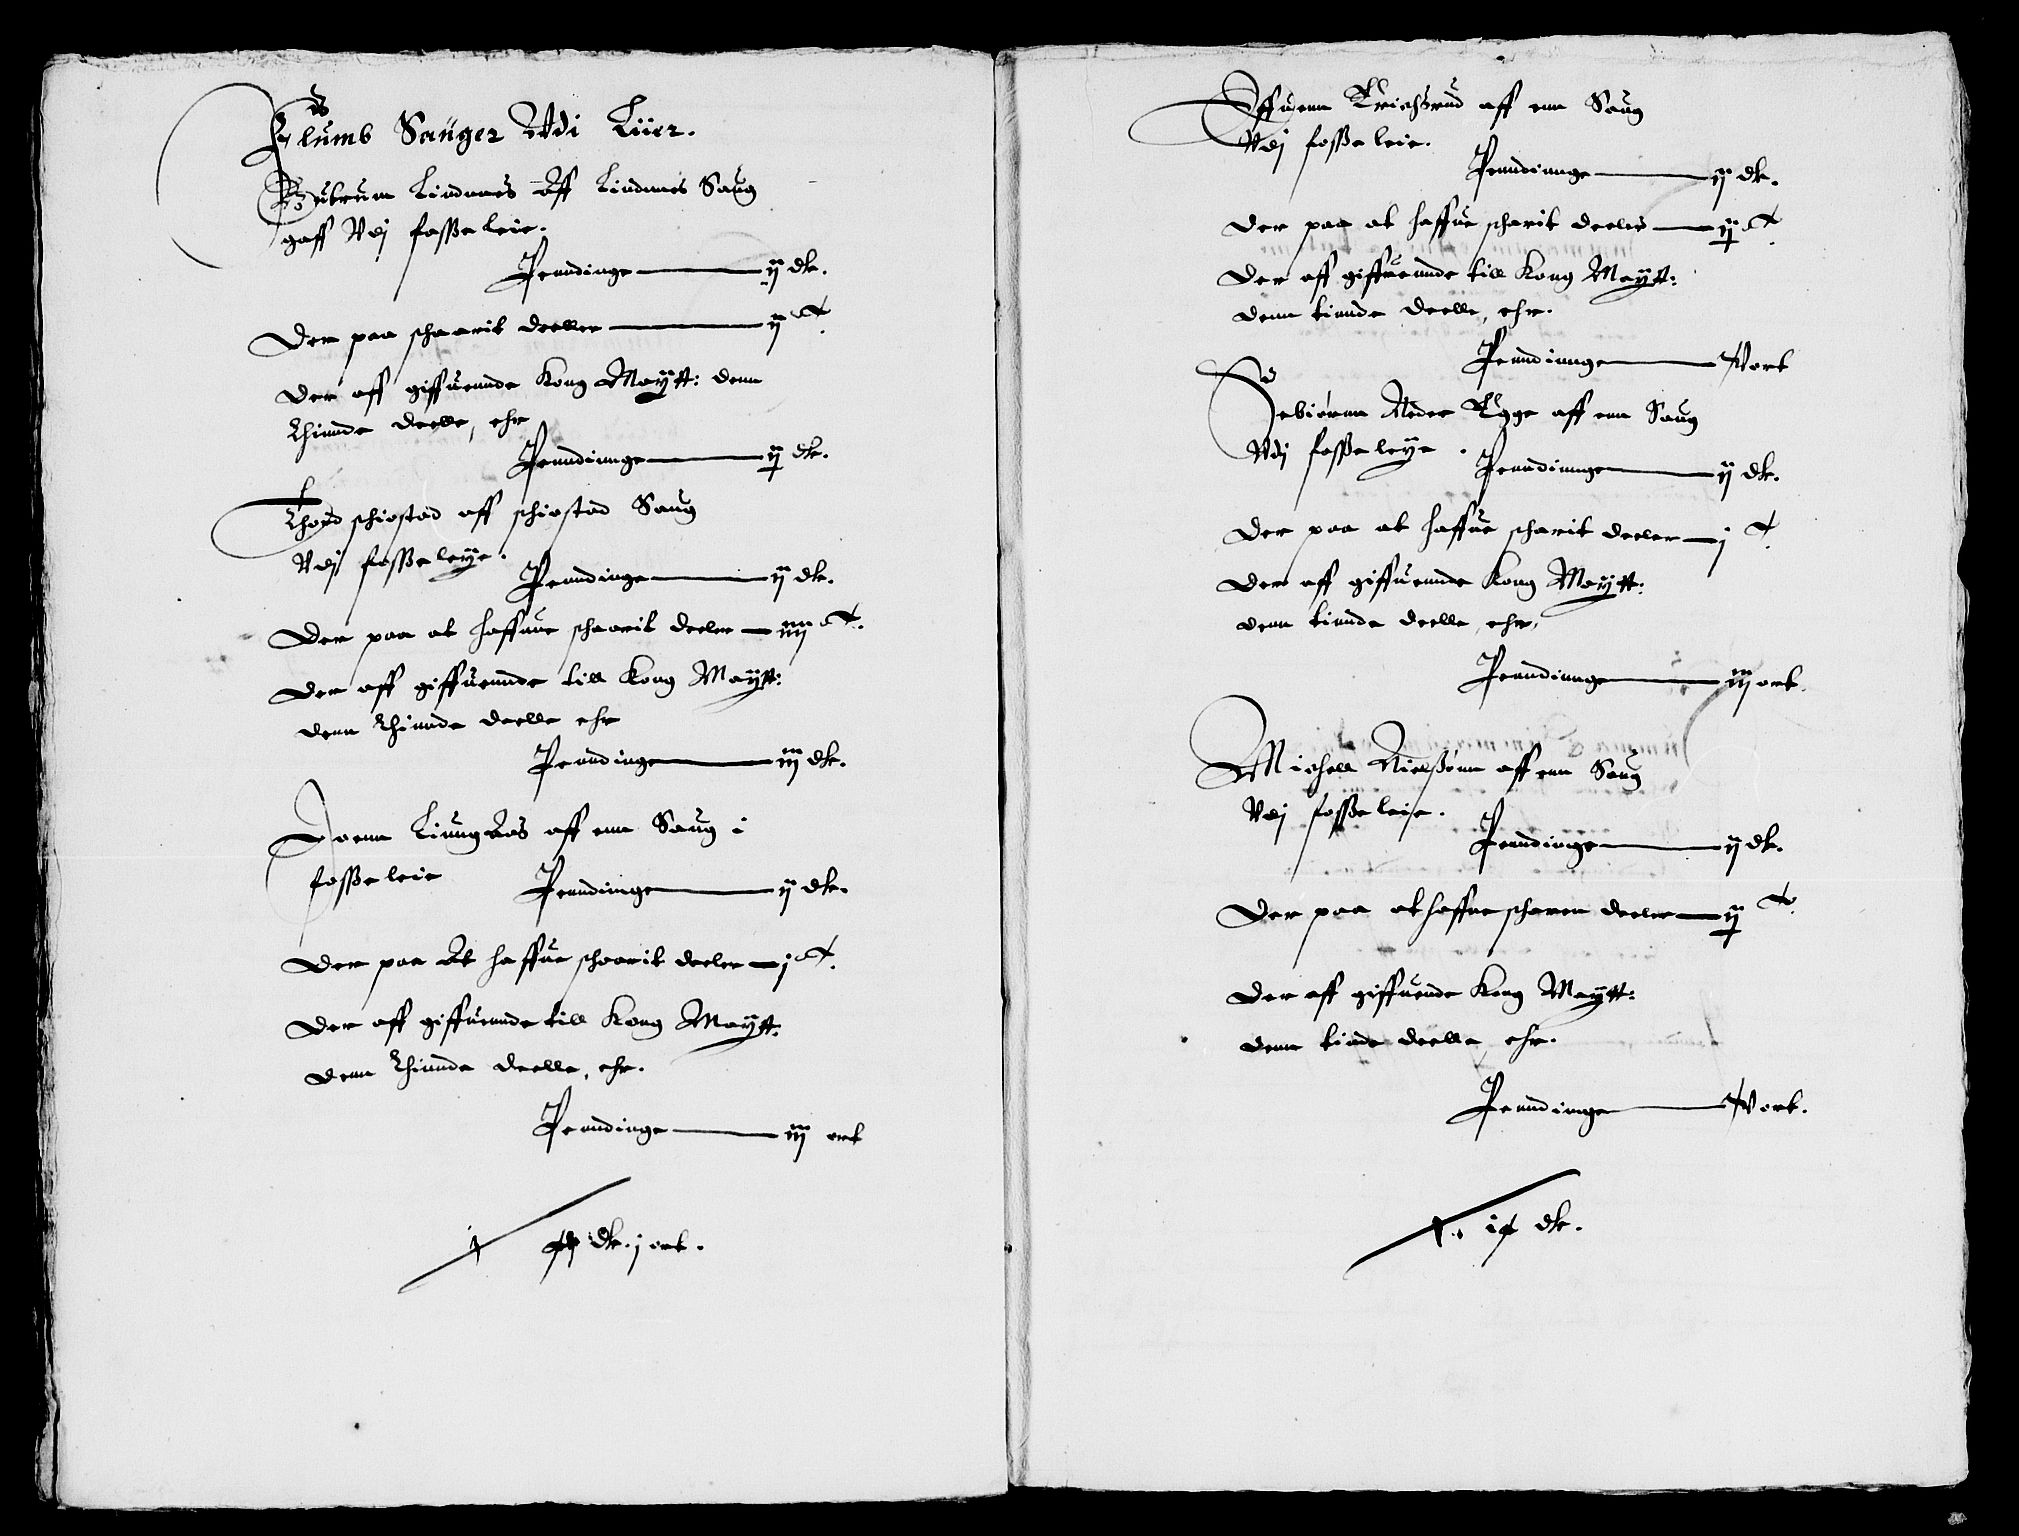 Flumb Sauger Udi Liier.
Gubrum Lindnnes Aff Lindnnes Saug
gaff Udj fosseleie.
Penndinge — ij dlr.
Der paa schaarit deeller — ij T
Der aff giffuennde Kong Maytt: denn
Thiende deelle, ehr
Penndinge — ij dlr.
Thord schiøstad aff schiøstad Saug
Udj fosseleye.
Penndinge — ij dlr.
Der paa at haffue schaarit deeler — iiij T.
Der aff giffuennde till Kong Maytt:
denn Thiende deelle ehr
Penndinge — iij dlr.
Joenn Liungaas aff enn Saug i
fosseleie
Penndinge — ij dlr.
Der paa At haffue schaarit deeler — j T.
Der aff giffuennde till Kong Maytt:
Denn Thiende deelle, ehr.
Penndinge — iij ort
dlr. j ort.
Effuenn Krichsrud aff enn Saug
Udj fosseleie.
Penndinge — ij dlr.
Der paa at haffue scharit deeler — ij T
Der aff giffuennde till Kong Maytt:
denn tiende deelle, ehr.
Penndinge — ort
Tebiørnn Neder Rygge aff enn Saug
Udj fosseleye.
Penndinge — ij dlr.
Der paa at haffue scharit deeler — j T
Der aff giffuennde Kong Maytt:
denn tiende deelle, ehr,
Penndinge — iij ort.
Michell Nielssønn aff enn Saug
Udj fosseleie.
Penndinge — ij dlr.
Der paa at haffue scharen deeler — ij T.
Der aff giffuende Kong Maytt:
denn tiende deelle, ehr.
Penndinge — ort.
dlr.